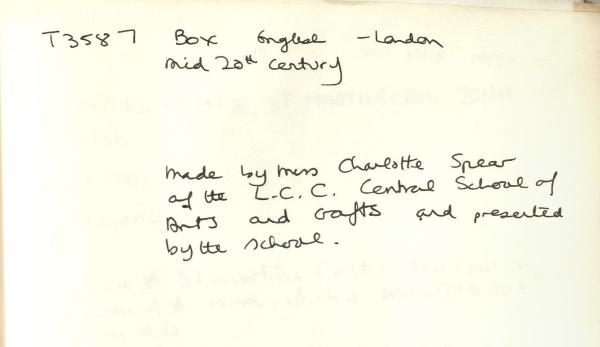 T3587 Box English - London
mid 20th century
made by Miss Charlotte Spear
of the L.C.C. Central School of
Arts and Crafts and presented
by the school.